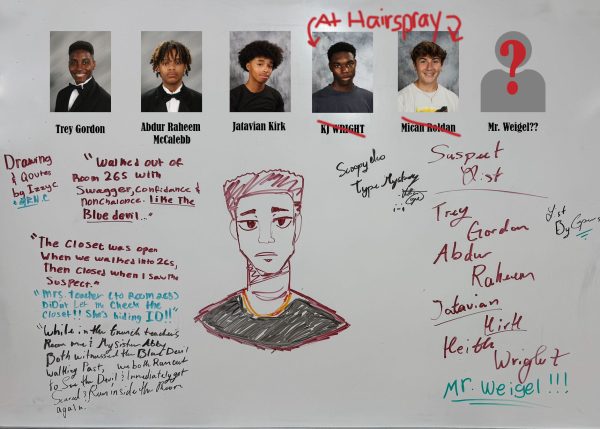 At Hairspray
Trey Gordon
Abdur Raheem
McCalebb
Jatavian Kirk
KJ WRIGHT
Mican Roldan
Mr. Weigel??
Drawing
& Qoutes
by Izzy C
"Walked out of
Room 265 with
Swagger, Confidance &
nonchalance. Like The
Blue devil..."
"The Closet was open
When we walked into 265,
Then closed when I saw The
Suspect."
"Mrs. Teacher (to Room 268)
DiDnt Let Me Check the
Closet!! She's hiding ID!!"
"While in the french teachers
Room me & My sister Abby
Both witnessed the Blue Devil
walking Past, we both Ran out
to See the Devil & Immediately got
Scared & Ran inside the Room
again.
Scoopydoo
Type Mystery
Suspect
List
Trey
Gordon
Abdur
Raheem
Jatavian
Kirk
Keith
Wright
Mr. Weigel!!!